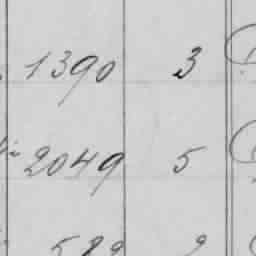 1390 3
2049 5